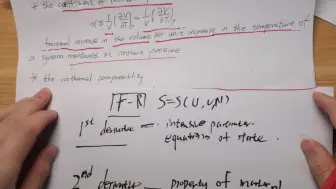 * the coefficient of thermal
α ≡ 1/V (∂V/∂T)P = 1/v (∂v/∂T)P
fractional increase in the volume per unit increase in the temperature of
a system maintained at constant pressure
* the isothermal compressibility
S=S(U,V,N)
1st derivative = intensive parameter
equations of state
2nd derivative — property of material